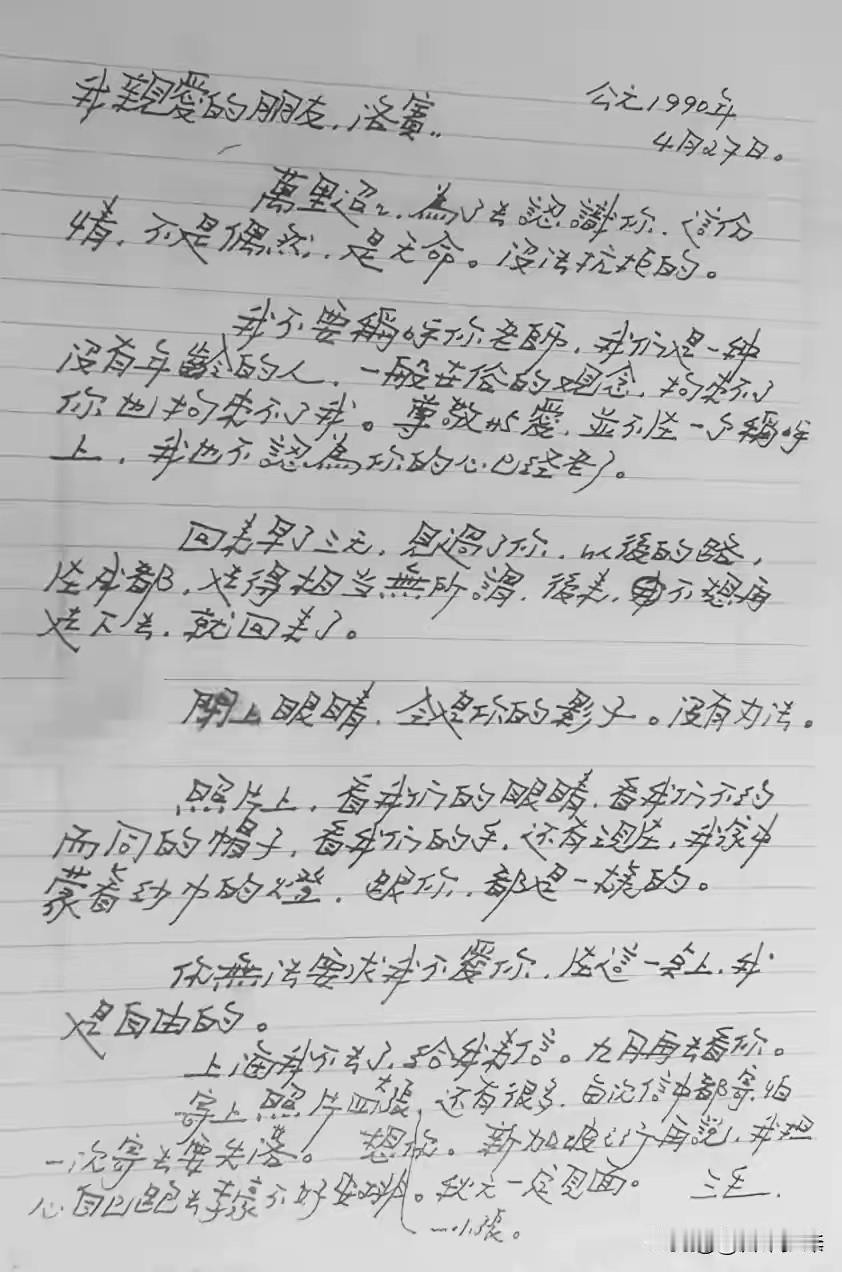 我親愛的朋友，洛賓，
公元1990年
4月27日。
萬里迢迢，為了去認識你，這份
情，不是偶然，是天命。沒法抗拒的。
我不要稱呼你老師，我们是一种
沒有年齡的人，一般世俗的观念，拘束不了
你也拘束不了我。尊敬与愛，並不在一个稱呼
上，我也不認為你的心已经老了。
回来早了三天，見過了你，以後的路，
在成都，走得相当無所謂，後来，不想再
走下去，就回来了。
閉上眼睛，全是你的影子。沒有办法。
照片上，看我们的眼睛，看我们不约
而同的帽子，看我们的手，还有現在，我家中
蒙着纱巾的燈，跟你，都是一樣的。
你無法要求我不愛你，在這一点上，我
是自由的。
上海我不去了，给我来信。九月再去看你。
寄上照片四大張，还有很多，每次信中都寄，怕
一次寄去要失落。想你。新加坡之行再說，我担
心自己跑去李豪不好安排。秋天一定見面。 三毛
一小張。